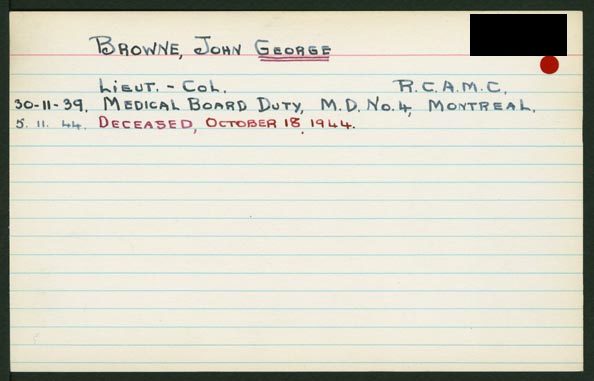 BROWNE, JOHN GEORGE
LIEUT. - COL. R.C.A.M.C.
30-11-39. MEDICAL BOARD DUTY, M.D. NO. 4, MONTREAL.
5. 11. 44. DECEASED, OCTOBER 18, 1944.